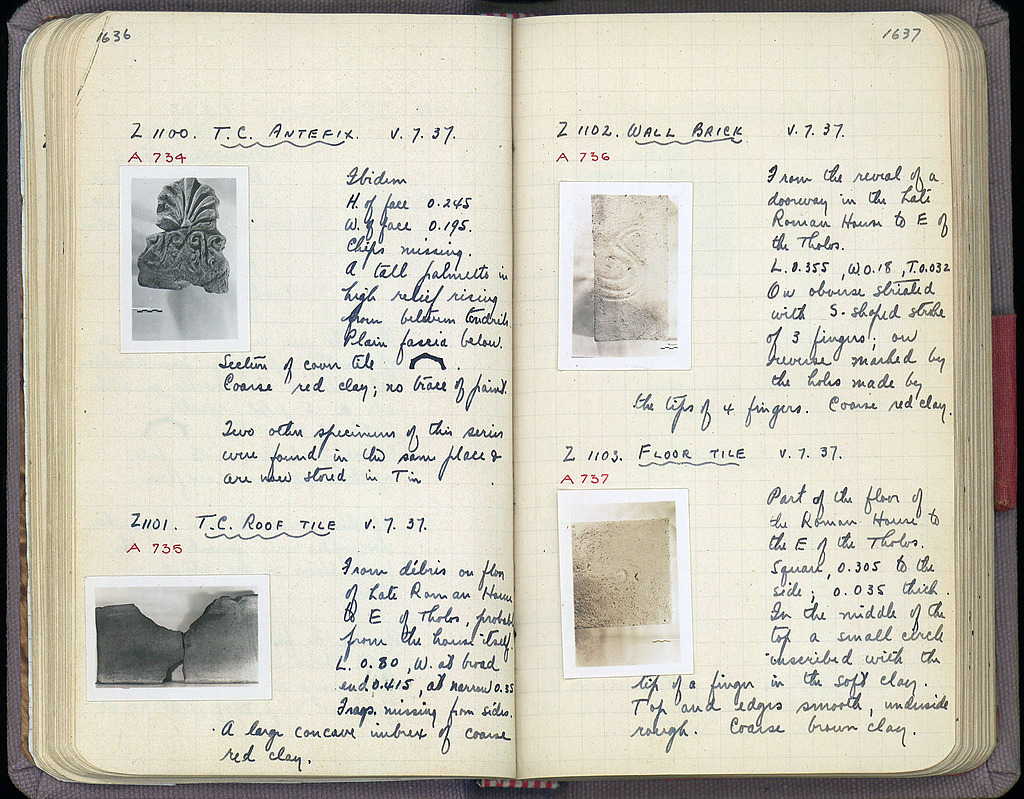 1636
Z 1100. T.C. ANTEFIX. V. 7. 37.
A 734
Ibidem
H. of face 0.245
W. of face 0.195.
Chips missing.
A tall palmette in
high relief rising
from between tendrils.
Plain fascia below.
Section of cover tile .
Coarse red clay; no trace of paint.
Two other specimens of this series
were found in the same place &
are now stored in Tin
Z1101. T.C. ROOF TILE V. 7. 37.
A 735
From débris on floor
of Late Roman House
to E of Tholos, probably
from the house itself.
L. 0.80, W. at broad
end 0.415, at narrow 0.35
Frags. missing from sides.
A large concave imbrex of coarse
red clay.
1637
Z 1102. WALL BRICK V. 7. 37.
A 736
From the reveal of a
doorway in the Late
Roman House to E of
the Tholos.
L. 0.355, W 0.18, T. 0.032
On obverse striated
with S-shaped stroke
of 3 fingers; on
reverse marked by
the holes made by
the tips of 4 fingers. Coarse red clay.
Z 1103. FLOOR TILE V. 7. 37.
A 737
Part of the floor of
the Roman House to
the E of the Tholos.
Square, 0.305 to the
side; 0.035 thick.
In the middle of the
top a small circle
inscribed with the
tip of a finger in the soft clay.
Top and edges smooth, underside
rough. Coarse brown clay.